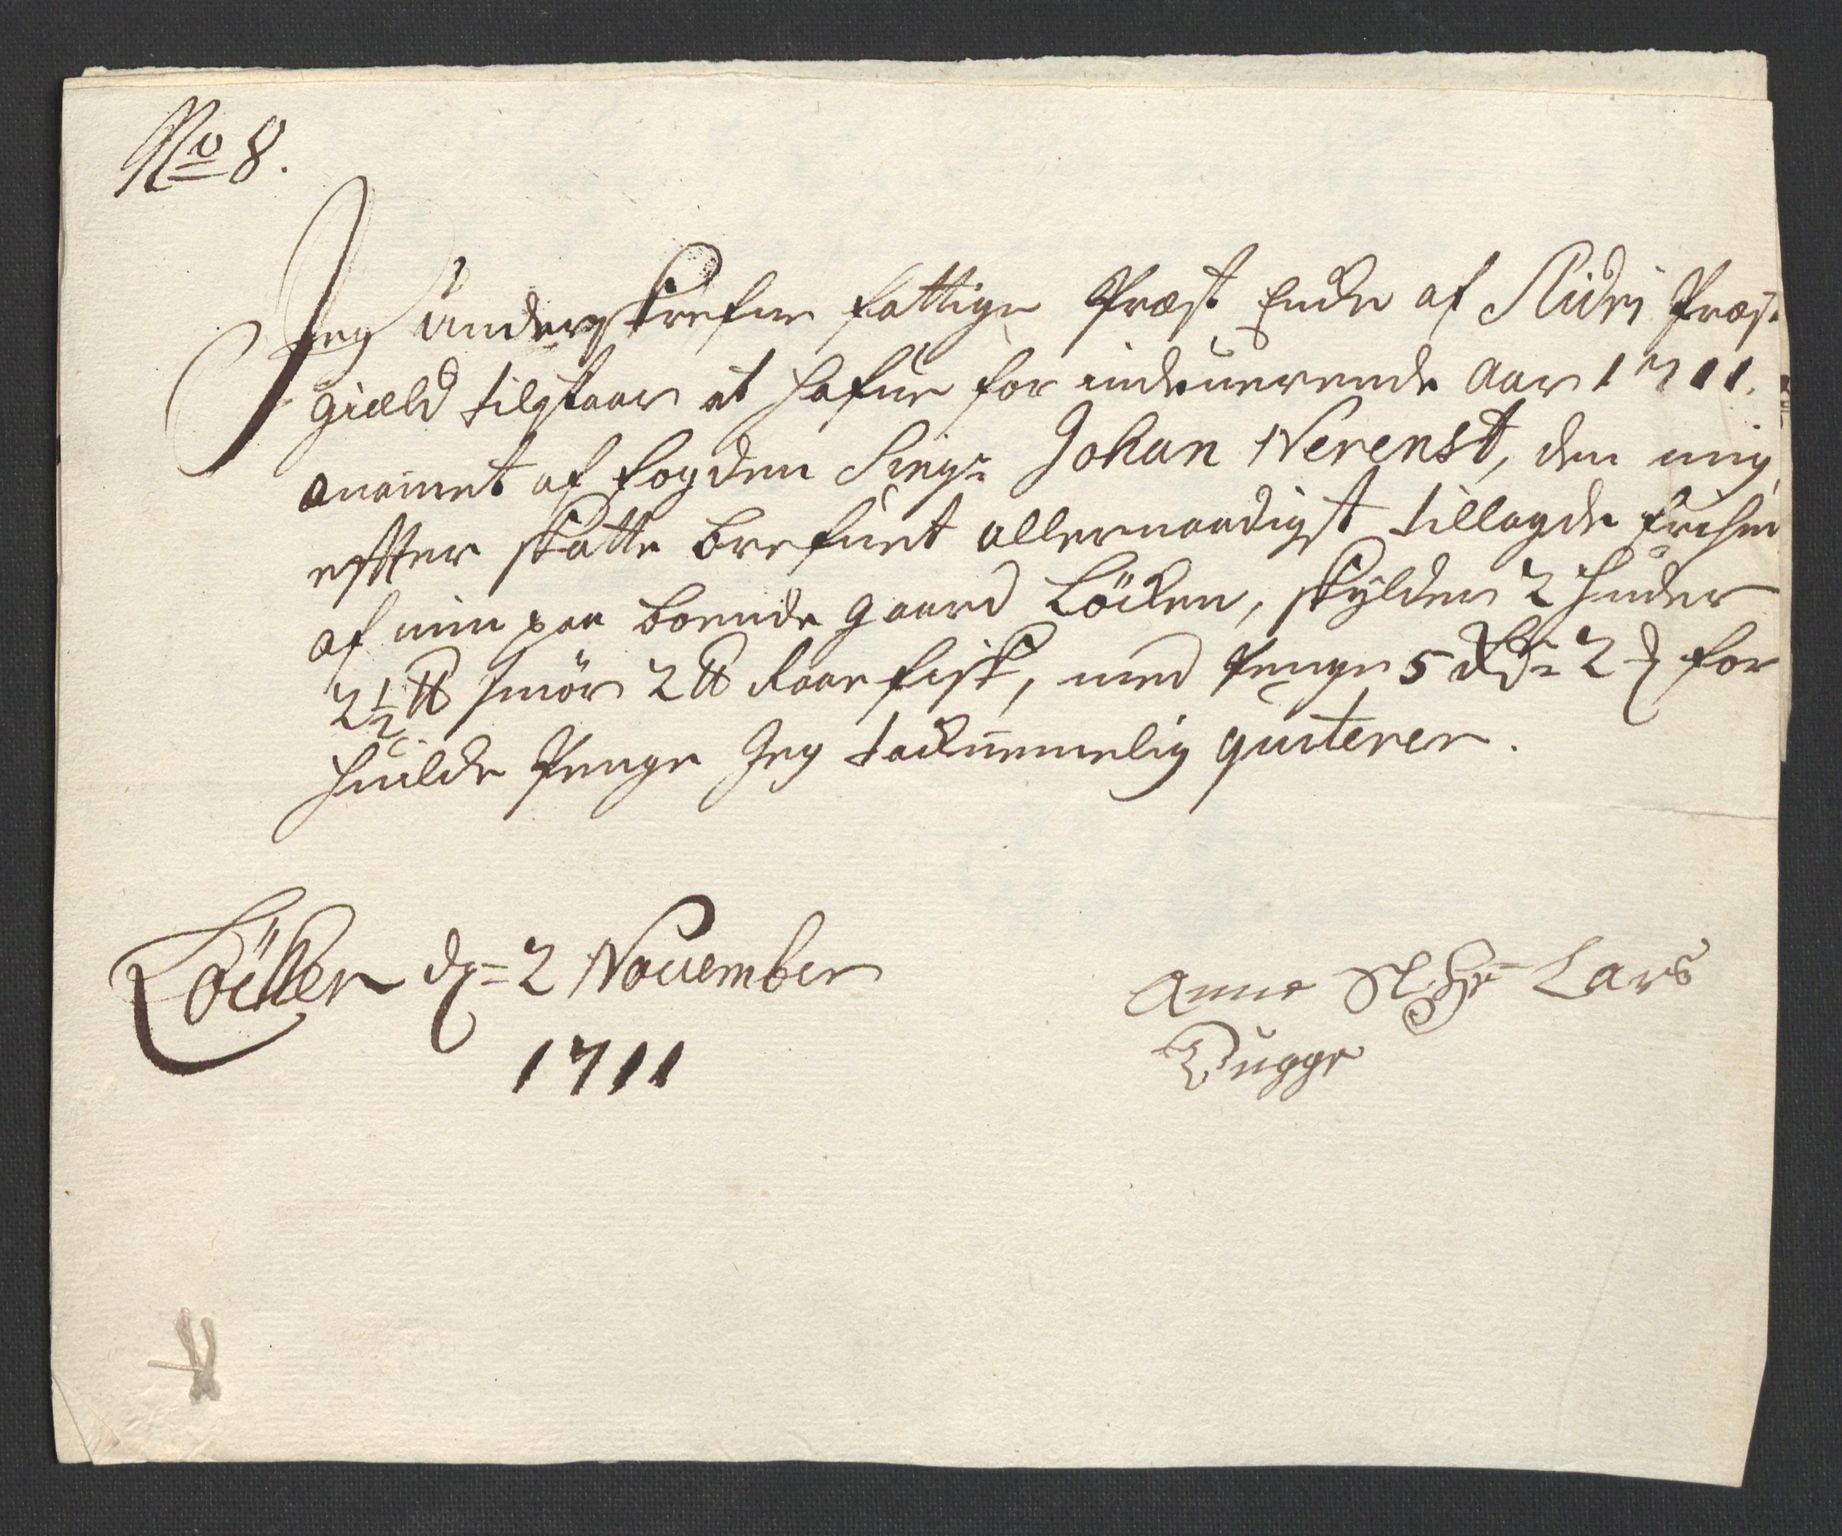 No 8.
Jeg Underskrefne fattige Præst Encke af Slidri Præste
gield tilstaar at hafue for indeuerende Aar 1711.
anamet af fogden Sieg:r Johan Nerenst, den mig
effter skatte brefuet allernaadigst tillagde frihed
af min paa boende gaard Löcken, skylder 2 huder
2½ ℔ smör 2 ℔ Raae fisk, med Penge 5 Rd:r 2 ₰ for
huilcke Penge Jeg tacknemmelig quiterer.
Löcken d:= 2 November
1711
Anne Sl: Hr Lars
Bugge